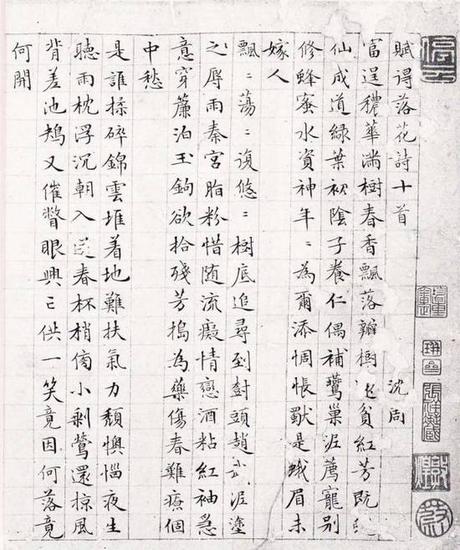 賦得落花詩十首
沈周
富逞穠華滿樹春香飄落瓣樹還貧紅芳既
仙成道綠葉初陰子養仁偶補鶯巢泥薦寵別
修蜂蜜水資神年〻為爾添惆悵獸是蛾眉未
嫁人
飄〻蕩〻復悠〻樹底追尋到樹頭趙武泥塗
之辱雨秦宮脂粉惜隨流癡情戀酒粘紅袖急
意穿簾泊玉鉤欲拾殘芳搗為藥傷春難療個
中愁
是誰揉碎錦雲堆着地難扶氣力頹懊惱夜生
聽雨枕浮沉朝入送春杯梢傍小剩鶯還掠風
背差池鳷又催瞥眼興亡供一笑竟因何落竟
何開